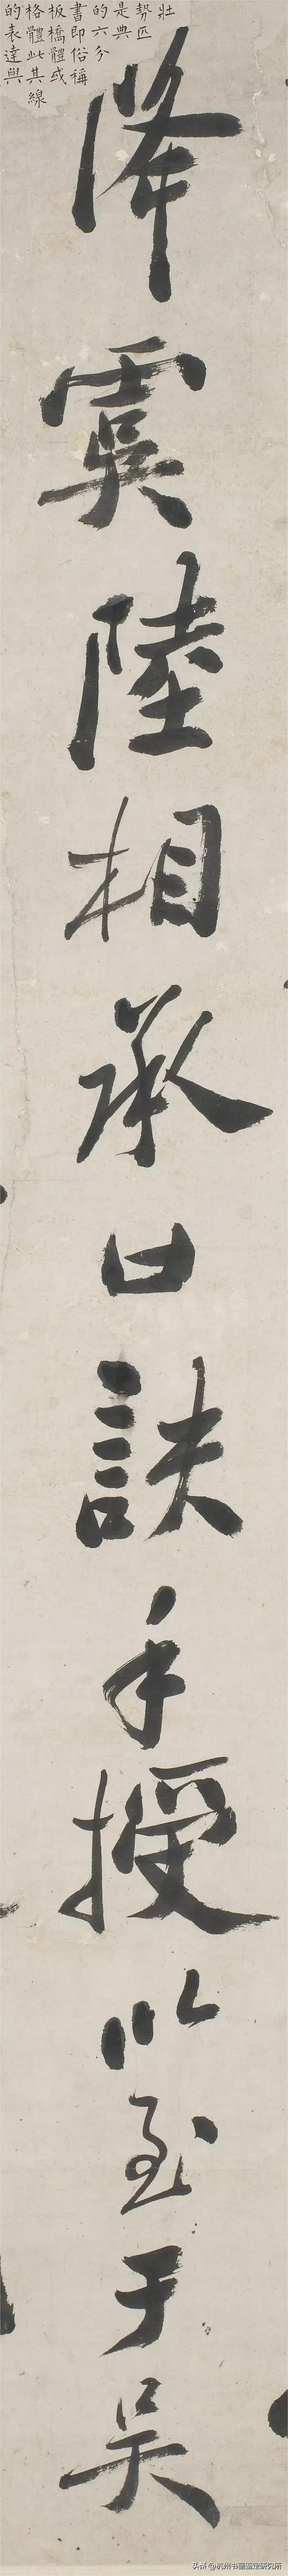 壯
勢匹
是典
的六分
書即俗稱
板橋體或
格體此其線
的表達與
降虞陸相承口訣手授以至于吳
头条 @杭州书画鉴定研究所